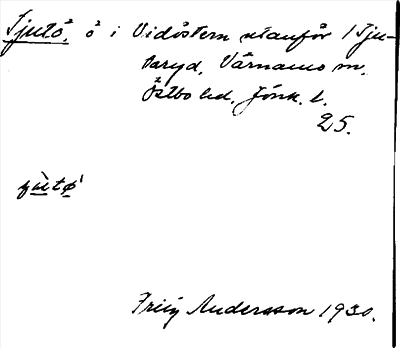 Tjutö, ö i Vidöstern utanför 1 Tju-
baryd, Värnamo sn.
Östbo hd. Jönk. l.
25.
Fritz Andersson 1930.